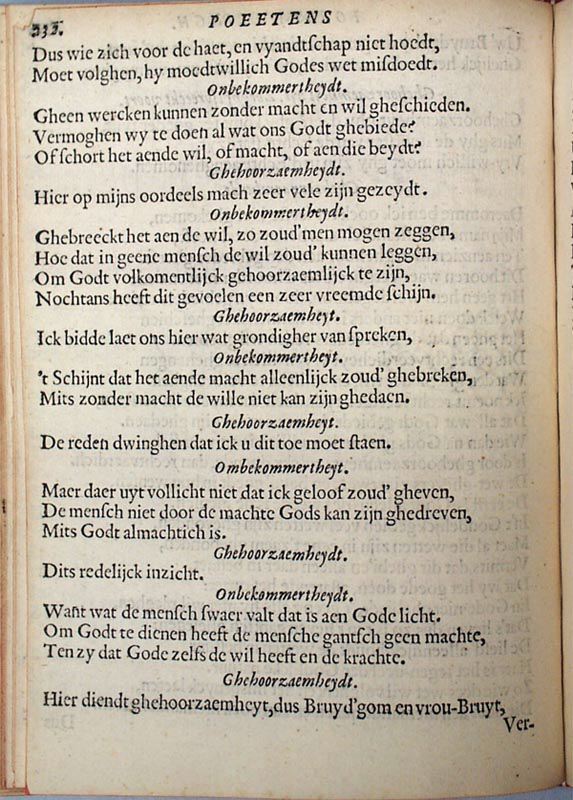 232. POEETENS
Dus wie zich voor de haet, en vyandtſchap niet hoedt,
Moet volghen, hy moedtwillich Godes wet miſdoedt.
Onbekommertheydt.
Gheen wercken kunnen zonder macht en wil gheſchieden.
Vermoghen wy te doen al wat ons Godt ghebiede?
Of ſchort het aende wil, of macht, of aen die beydt?
Ghehoorzaemheydt.
Hier op mijns oordeels mach zeer vele zijn gezeydt.
Onbekommertheydt.
Ghebreeckt het aen de wil, zo zoud'men mogen zeggen,
Hoe dat in geene menſch de wil zoud' kunnen leggen,
Om Godt volkomentlijck gehoorzaemlijck te zijn,
Nochtans heeft dit gevoelen een zeer vreemde ſchijn.
Ghehoorzaemheyt.
Ick bidde laet ons hier wat grondigher van ſpreken,
Onbekommertheyt.
't Schijnt dat het aende macht alleenlijck zoud' ghebreken,
Mits zonder macht de wille niet kan zijn ghedaen.
Ghehoorzaemheyt.
De reden dwinghen dat ick u dit toe moet ſtaen.
Ombekommertheyt.
Maer daer uyt vollicht niet dat ick geloof zoud' gheven,
De menſch niet door de machte Gods kan zijn ghedreven,
Mits Godt almachtich is.
Ghehoorzaemheydt.
Dits redelijck inzicht.
Onbekommertheydt.
Want wat de menſch ſwaer valt dat is aen Gode licht.
Om Godt te dienen heeft de menſche gantſch geen machte,
Ten zy dat Gode zelfs de wil heeft en de krachte.
Ghehoorzaemheydt.
Hier diendt ghehoorzaemheyt, dus Bruyd'gom en vrou-Bruyt,
Ver-